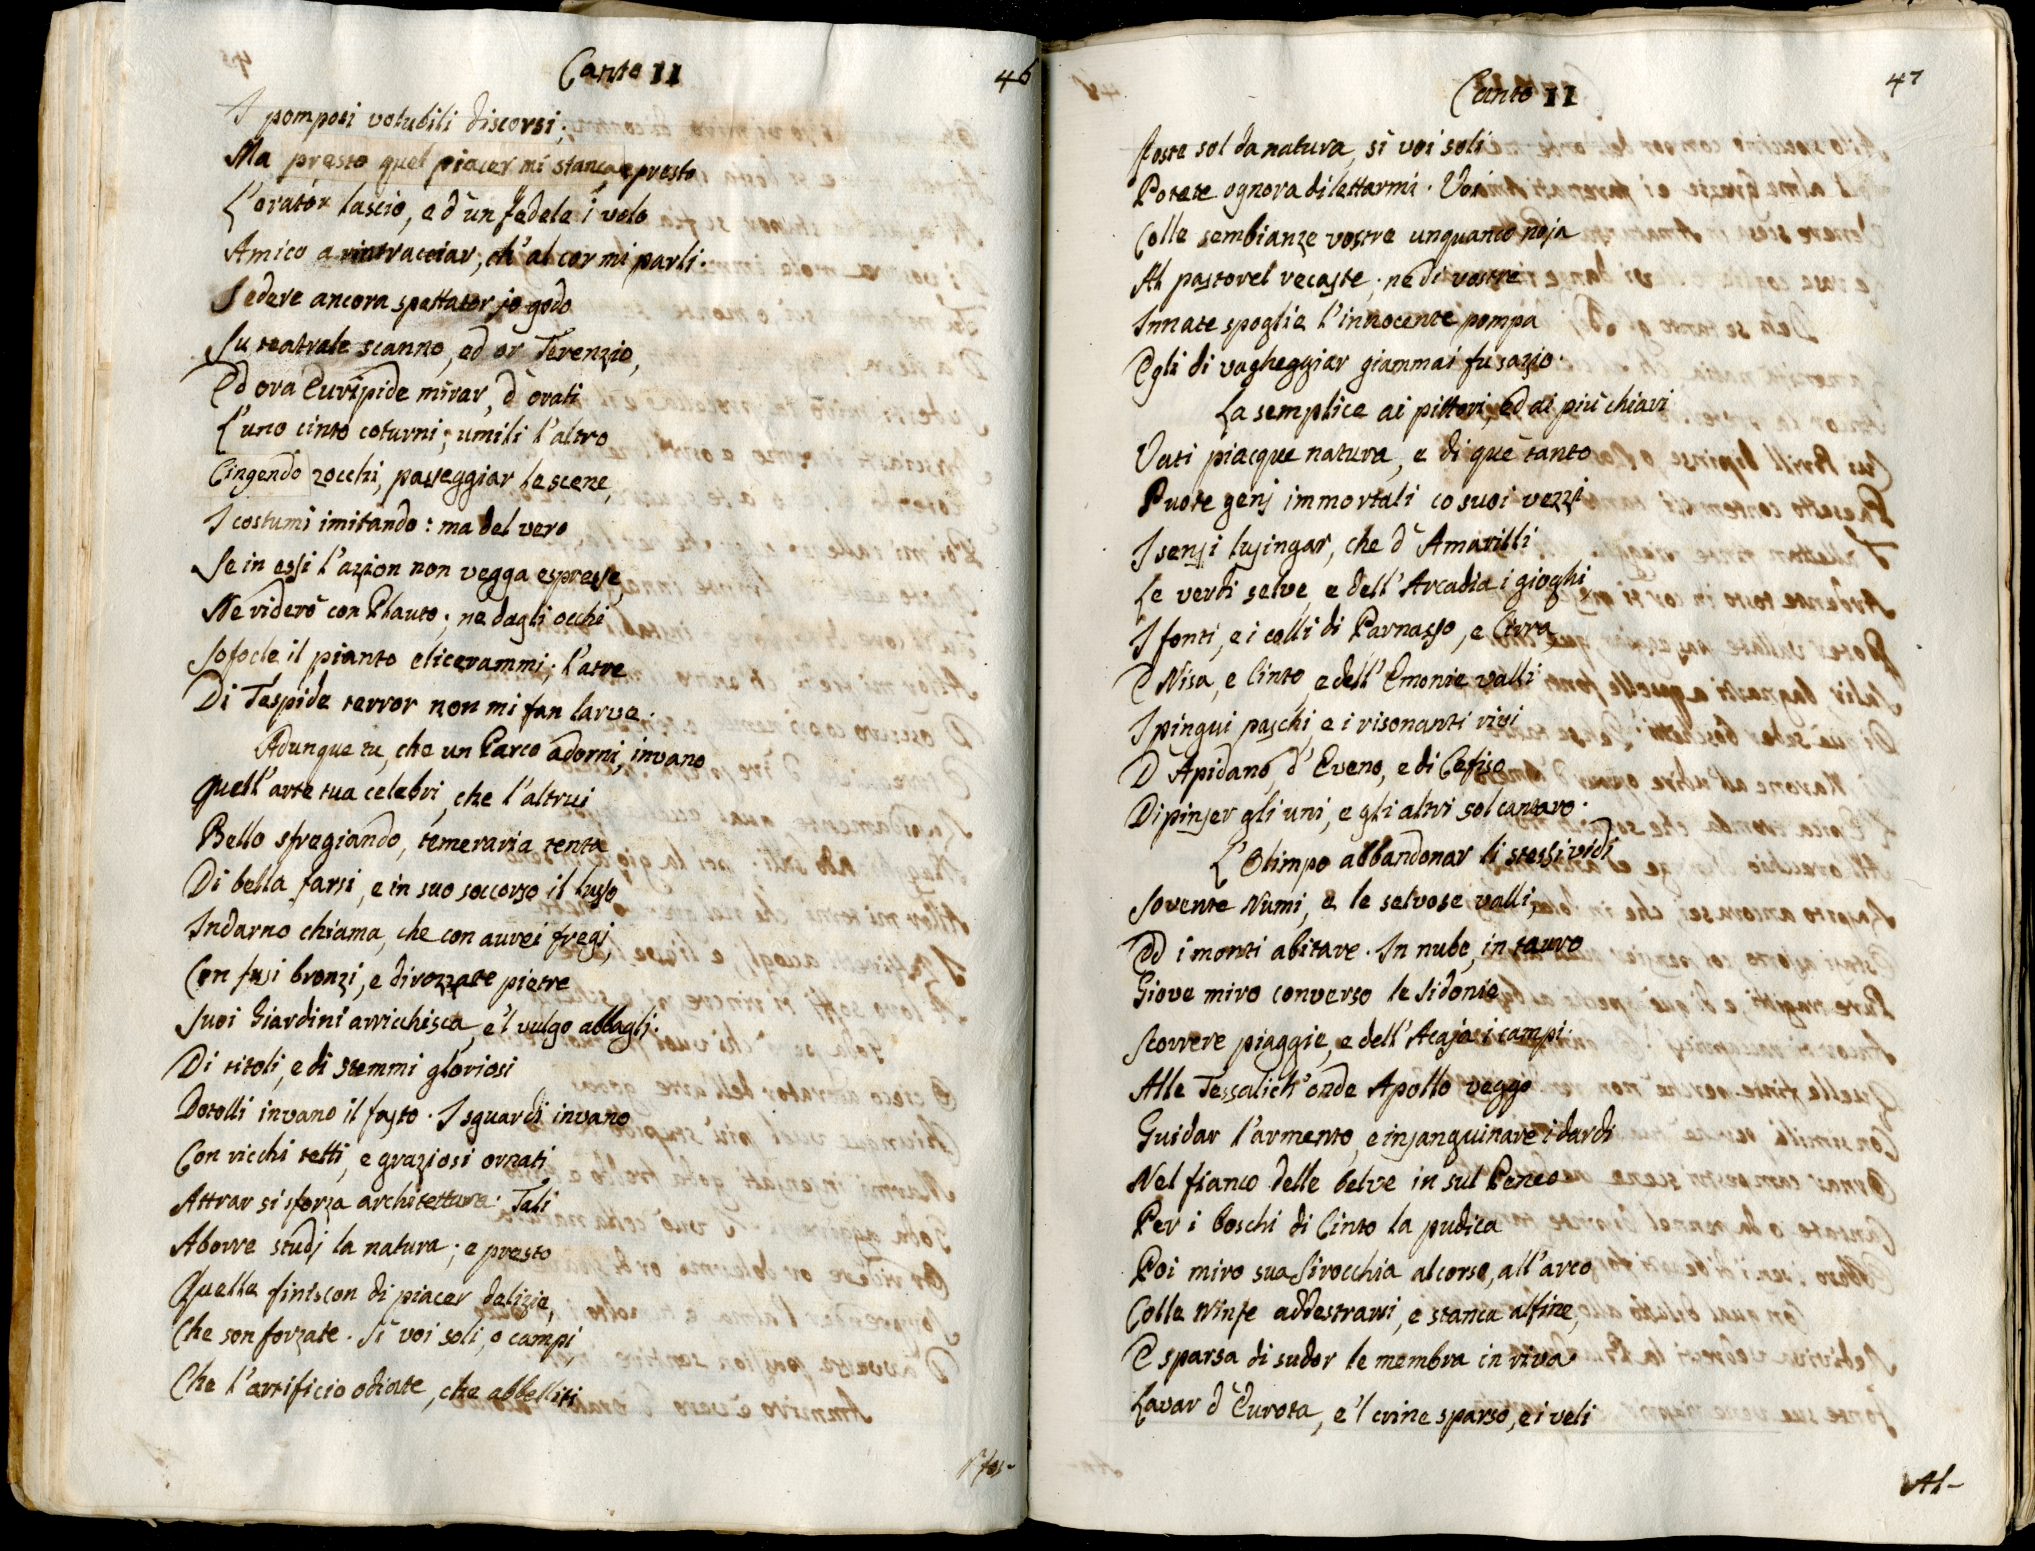 Canto II
46
I pomposi volubili discorsi;
Ma presto quel piacer mi stanca, e presto
L'orator lascio, e d'un fedele i' volo
Amico a rintracciar, ch'al cor mi parli.
Sedere ancora spettator jo godo
Su teatrale scanno, ed or Terenzio,
Ed ora Euripide mirar, d'orati
L'uno cinto coturni; umili l'altro
Cingendo zocchi, passeggiar le scene,
I costumi imitando: ma del vero
Se in essi l'azion non vegga espresse,
Ne riderò con Plauto; ne dagli occhi
Sofocle il pianto elicerammi; l'atre
Di Tespide terror non mi fan larve.
Adunque tu, che un Parco adorni, invano
Quell'arte tua celebri, che l'altrui
Bello sfregiando, temeraria tenta
Di bella farsi, e in suo soccorso il lusso
Indarno chiama, che con aurei fregj,
Con fusi bronzi, e dirozzate pietre
Suoi Giardini arricchisca, e'l vulgo abbagli.
Di titoli, e di stemmi gloriosi
Dotolli invano il fasto. I sguardi invano
Con ricchi tetti, e graziosi ornati
Attrar si sforza architettura. Tali
Aborre studj la natura; e presto
Quelle finiscon di piacer delizie,
Che son forzate. Sì voi soli, o campi,
Che l'artificio odiate, che abbelliti
Fos-
Canto II
47
Foste sol da natura, sì voi soli
Potete ognora dilettarmi. Voi
Colle sembianze vostre unquanco noja
Al pastorel recaste; ne di vostre
Innate spoglie l'innocente pompa
Egli di vagheggiar giammai fu sazio.
La semplice ai pittori, ed ai più chiari
Vati piacque natura, e di que' tanto
Puote genj immortali co suoi vezzi
I sensi lusingar, che d'Amarilli
Le verdi selve, e dell'Arcadia i gioghi,
I fonti, e i colli di Parnasso, e Cirra,
E Nisa, e Cinto, e dell'Emonie valli
I pingui paschi, e i risonanti rivi
D'Apidano, d'Eveno, e di Cefiso
Dipinser gli uni, e gli altri sol cantaro.
L'Olimpo abbandonar li stessi vidi
Sovente Numi, e le selvose valli,
Ed i monti abitare. In nube, in tauro
Giove miro converso le Sidonie
Scorrere piaggie, e dell'Acaja i campi.
Alle Tessalich'onde Apollo veggo
Guidar l'armento, e insanguinare i dardi
Nel fianco delle belve in sul Peneo
Per i boschi di Cinto la pudica
Poi miro sua Sirocchia al corso, all'arco
Colle Ninfe addestrarsi, e stanca alfine,
E sparsa di sudor le membra in riva
Lavar d'Eurota, e'l crine sparso, e i veli
Al-